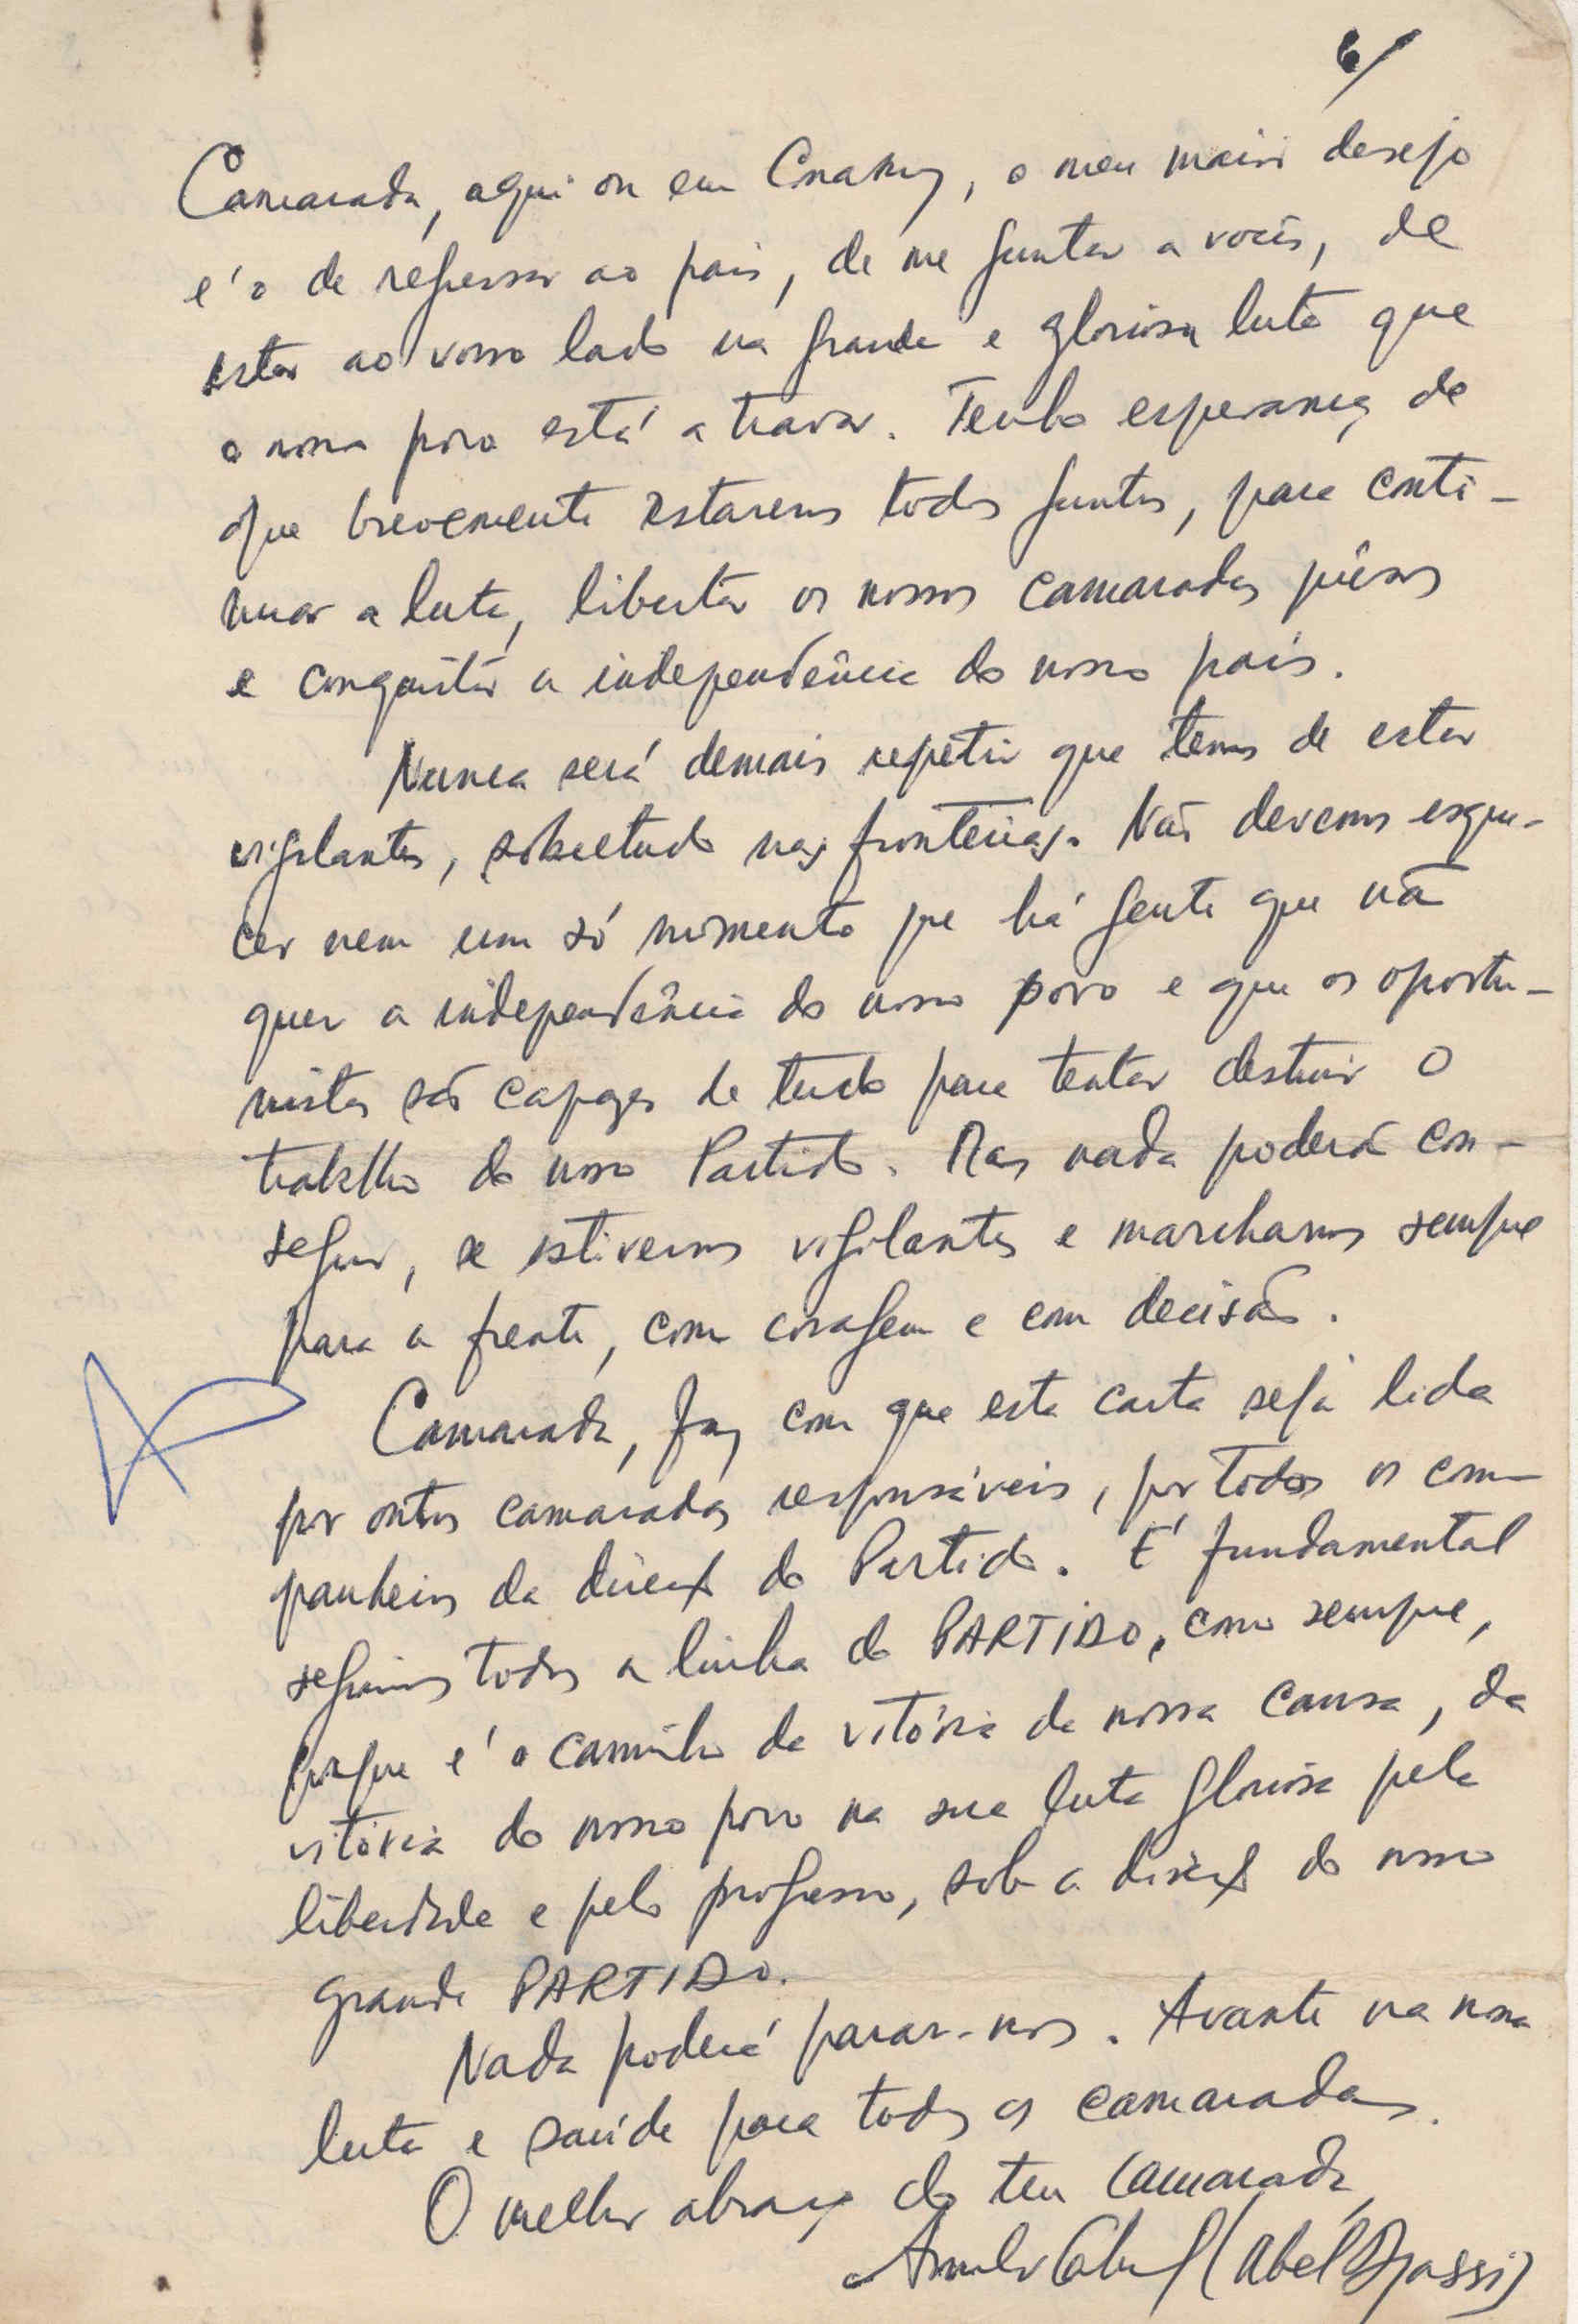 6/
Camarada, aqui ou em Conakry, o meu maior desejo
é o de regressar ao país, de me juntar a vocês, de
estar ao vosso lado na grande e gloriosa luta que
o nosso povo está a travar. Tenho esperança de
que brevemente estaremos todos juntos, para conti-
nuar a luta, libertar os nossos camaradas presos
e conquistar a independência do nosso país.
Nunca será demais repetir que temos de estar
vigilantes, sobretudo nas fronteiras. Não devemos esque-
cer nem um só momento que há gente que não
quer a independência do nosso povo e que os oportu-
nistas são capazes de tudo para tentar destruir o
trabalho do nosso Partido. Mas nada poderão con-
seguir, se estivermos vigilantes e marcharmos sempre
para a frente, com coragem e com decisão.
Camarada, faz com que esta carta seja lida
por outros camaradas responsáveis, por todos os com-
panheiros da direcção do Partido. É fundamental
seguirmos todos a linha do PARTIDO, como sempre,
porque é o caminho da vitória da nossa causa, da
vitória do nosso povo na sua luta gloriosa pela
liberdade e pelo progresso, sob a direcção do nosso
grande PARTIDO.
Nada poderá parar-nos. Avante na nossa
luta e saúde para todos os camaradas.
O melhor abraço do teu camarada
Amílcar Cabral (Abel Djassi)